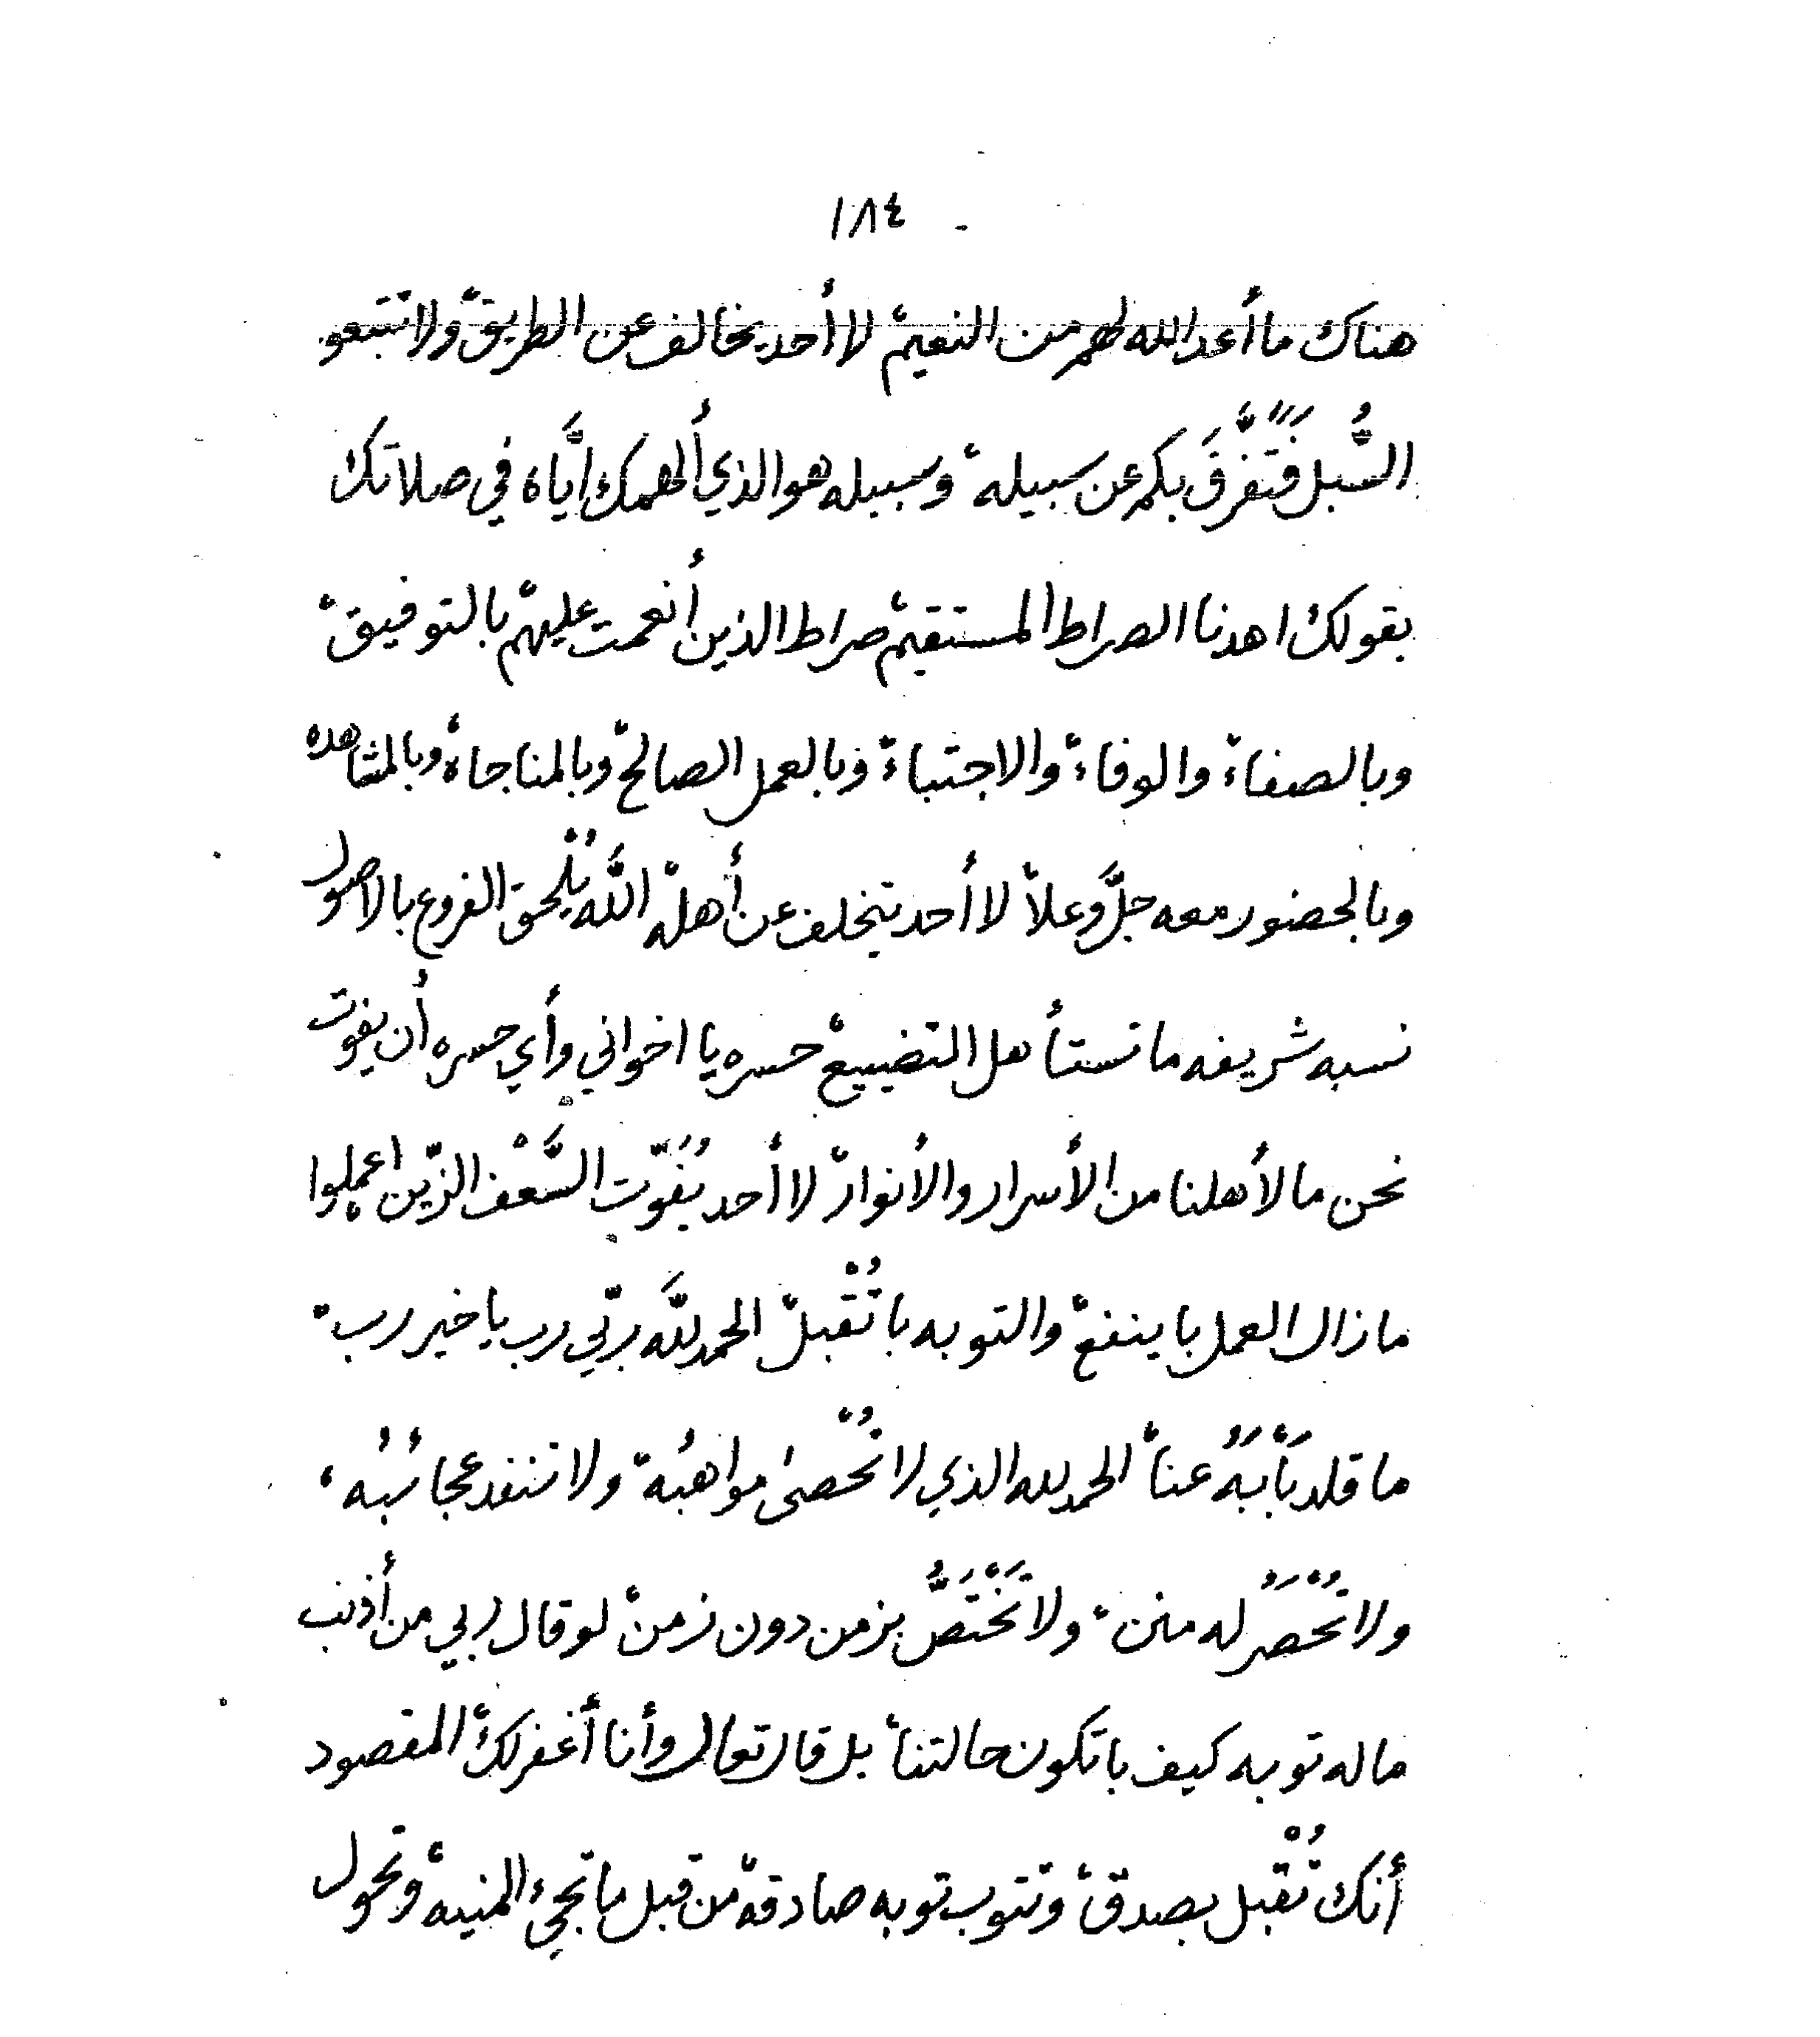 ١٨٤
هناك ما أعد الله لهم من النعيمْ لا أحد يخالف عن الطريقْ ولا تتبعو
السُّبل فَتَفَرَّقَ بكم عن سبيلهْ وسبيله هو الذي ألهمك إيَّاه في صلاتك
بقولك اهدنا الصراط المستقيمْ صراط الذين أنعمت عليهمْ بالتوفيقْ
وبالصفاءْ والوفاءْ والاجتباءْ وبالعمل الصالحْ وبالمناجاهْ وبالمشاهده
وبالحضور معه جلَّ وعلاْ لا أحد يتخلف عن أهلهْ اللَّه يُلْحق الفروع بالاصول
نسبه شريفه ما تستأهل التضييعْ حسره يا اخواني وأي حسره أن يفوت
نحن ما لأهلنا من الأسرار والأنوارْ لا أحد يُفَوّت السَّعْف الزّين اعملوا
ما زال العمل با ينفعْ والتوبه با تُقْبلْ الحمد للَّه ربّي رب يا خير ربْ
ما قلد بَأْبَهُ عناْ الحمد لله الذي لا تُحْصىٰ مواهبُهْ ولا تنفد عجائبُهْ
ولا تُحْصَرُ له مننْ ولا تَخْتَصُّ بزمن دون زمنْ لو قال ربي من أذنب
ما له توبه كيف با تكون حالتناْ بل قال تعالى وأنا أغفر لكْ المقصود
أنك تُقْبل بصدقْ وتتوب توبه صادقهْ من قبل ما تجيْ المنيهْ وتحول